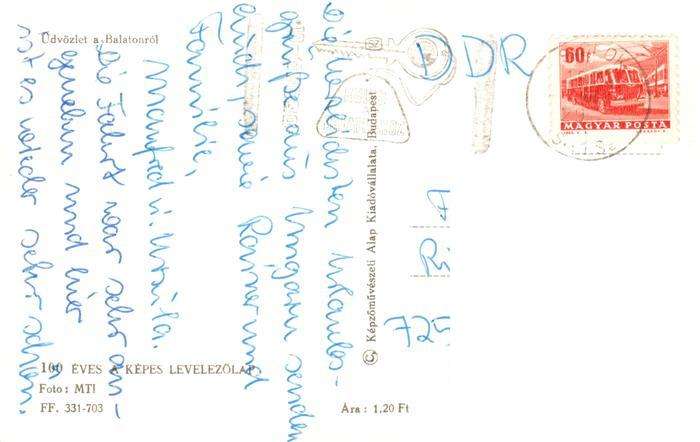 Üdvözlet a Balatonról
Die herzlichsten Urlaubs-
grüße aus Ungarn senden
Familie,
Manfred u. Ursula.
Die Fahrt war sehr an-
genehm und hier
ist es wieder sehr schön.
DDR
R. A
725
60f
MAGYAR POSTA
© Képzőművészeti Alap Kiadóvállalata, Budapest
100 ÉVES A KÉPES LEVELEZŐLAP
Foto: MTI
FF. 331-703
Ára: 1,20 Ft